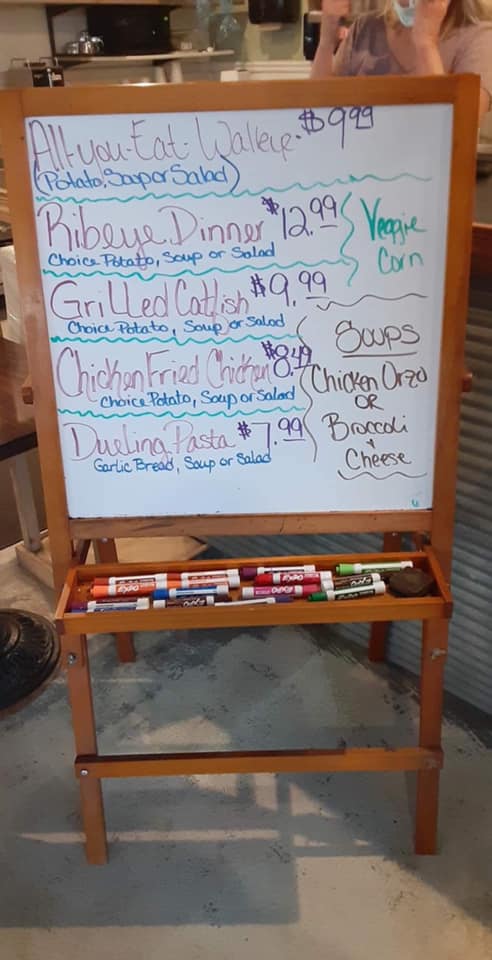 All-you-Eat-Walleye. $9.99
(Potato, Soup or Salad)
Ribeye Dinner $12.99
Choice Potato, Soup or Salad
Veggie
Corn
Grilled Catfish $9.99
Choice Potato, Soup or Salad
Chicken Fried Chicken $8.49
Choice Potato, Soup or Salad
Dueling Pasta $7.99
Garlic Bread, Soup or Salad
Soups
Chicken Orzo
OR
Broccoli
+
Cheese
EXPO
EXPO